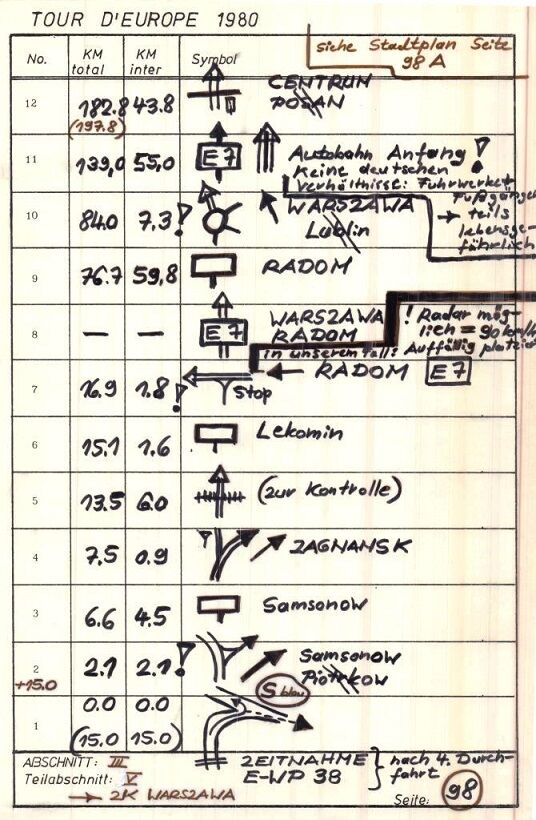 TOUR D'EUROPE 1980
siehe Stadtplan Seite
98A
No. KM total KM inter Symbol
12 182.8 43.8 CENTRUM
(197.8) POSAN
11 139,0 55,0 E7 Autobahn Anfang!
Keine deutschen
Verhältnisse: Fuhrwerke +
Fußgänger
→ teils
lebensge-
fährlich
10 84.0 7.3! WARSZAWA
Lublin
9 76.7 59,8 RADOM
8 — — E7 WARSZAWA
RADOM
! Radar mög-
lich = 90 km/h
in unserem Fall: Auffällig platziert
7 16.9 1.8! Stop ← RADOM E7
6 15.1 1.6 Lekomin
5 13.5 6.0 (zur Kontrolle)
4 7.5 0.9 ZAGNANSK
3 6.6 4.5 Samsonow
2 2.1 2.1! Samsonow
+15.0 Piotrkow
S blau
1 0.0 0.0
(15.0 15.0)
ABSCHNITT: III
Teilabschnitt: V
→ ZK WARSZAWA
ZEITNAHME
E-WP 38
} nach 4. Durch-
fahrt
Seite: 98